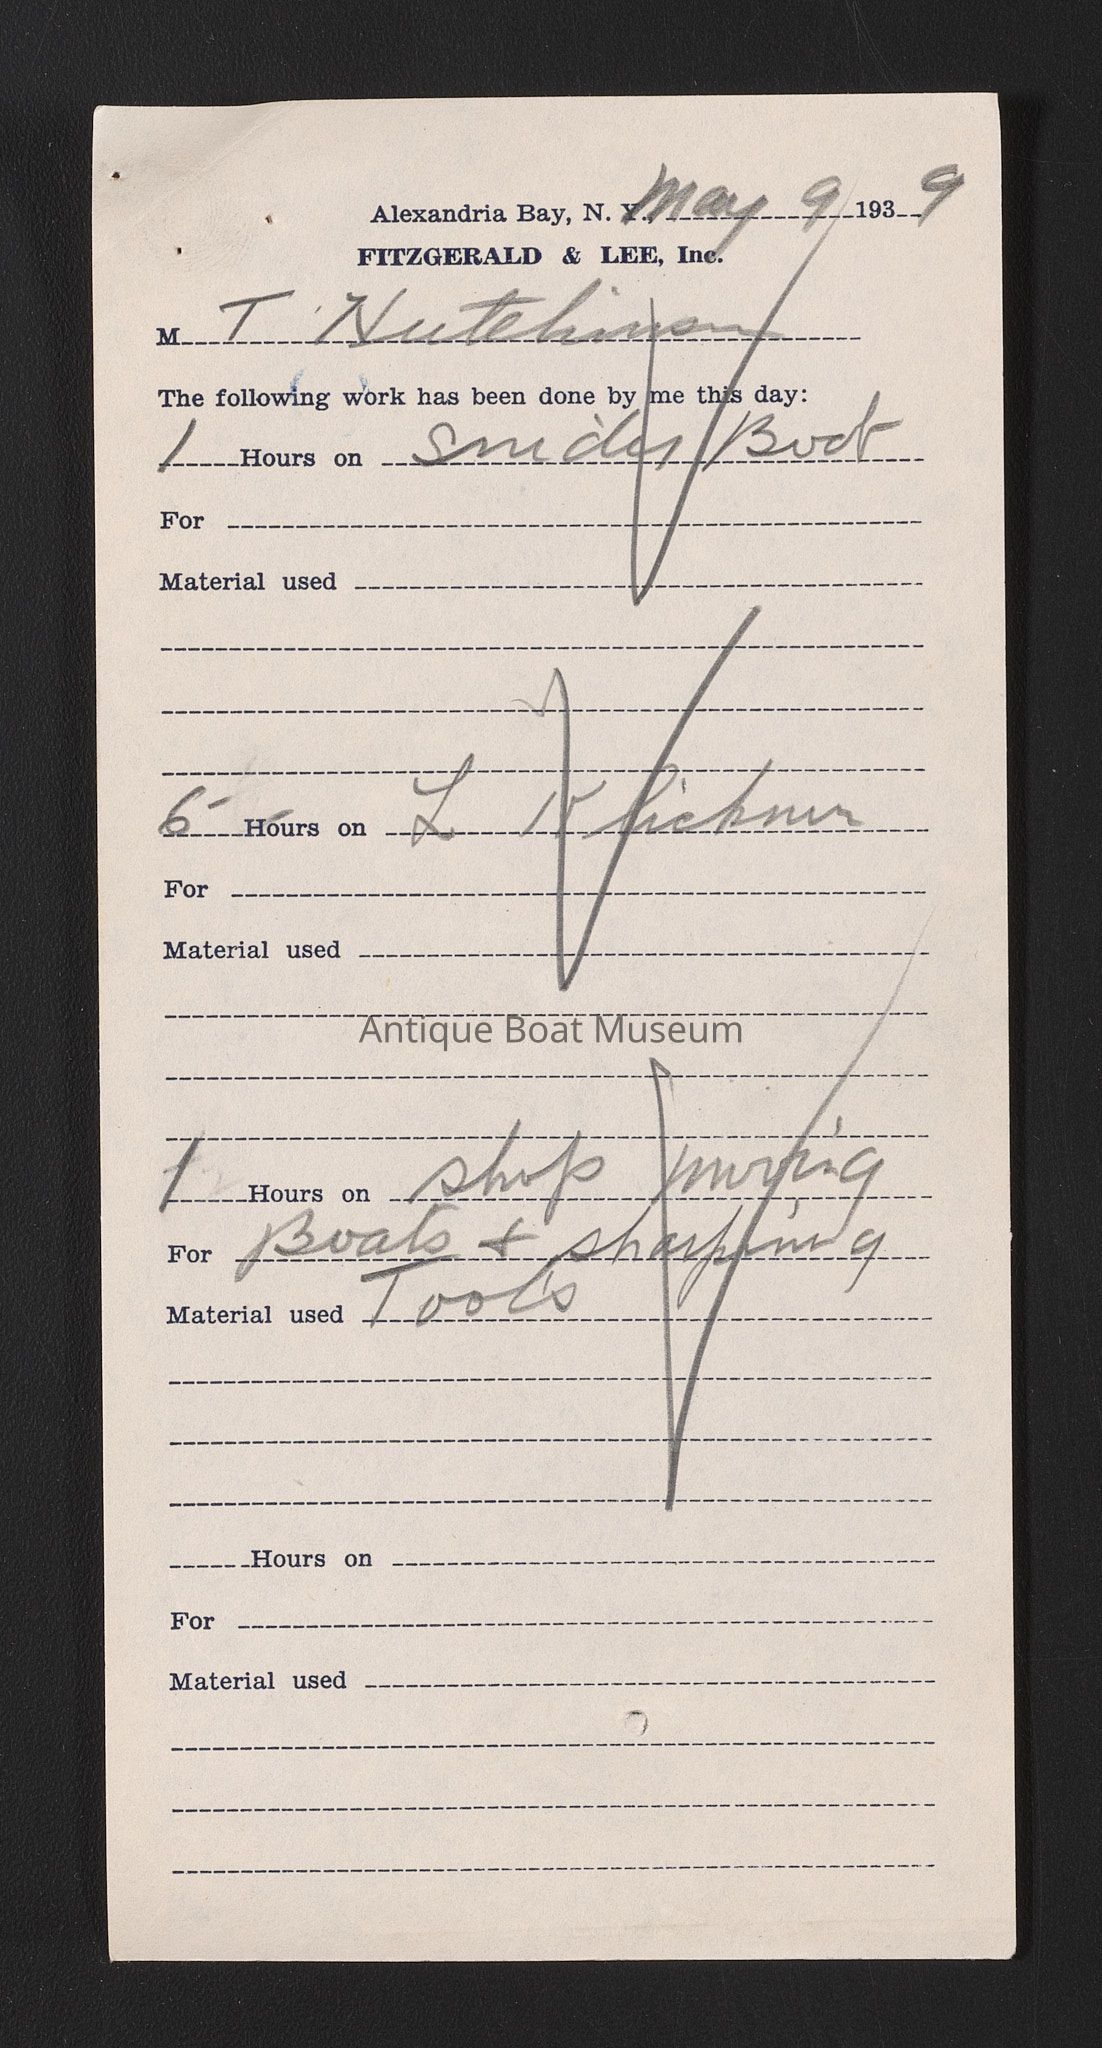 Alexandria Bay, N. Y., May 9 1939
FITZGERALD & LEE, Inc.
M T Hutchinson
The following work has been done by me this day:
1 Hours on Snider Boat
For
Material used
6 Hours on L Klickner
For
Material used
Antique Boat Museum
1 Hours on shop moving
For Boats + sharping
Material used Tools
Hours on
For
Material used